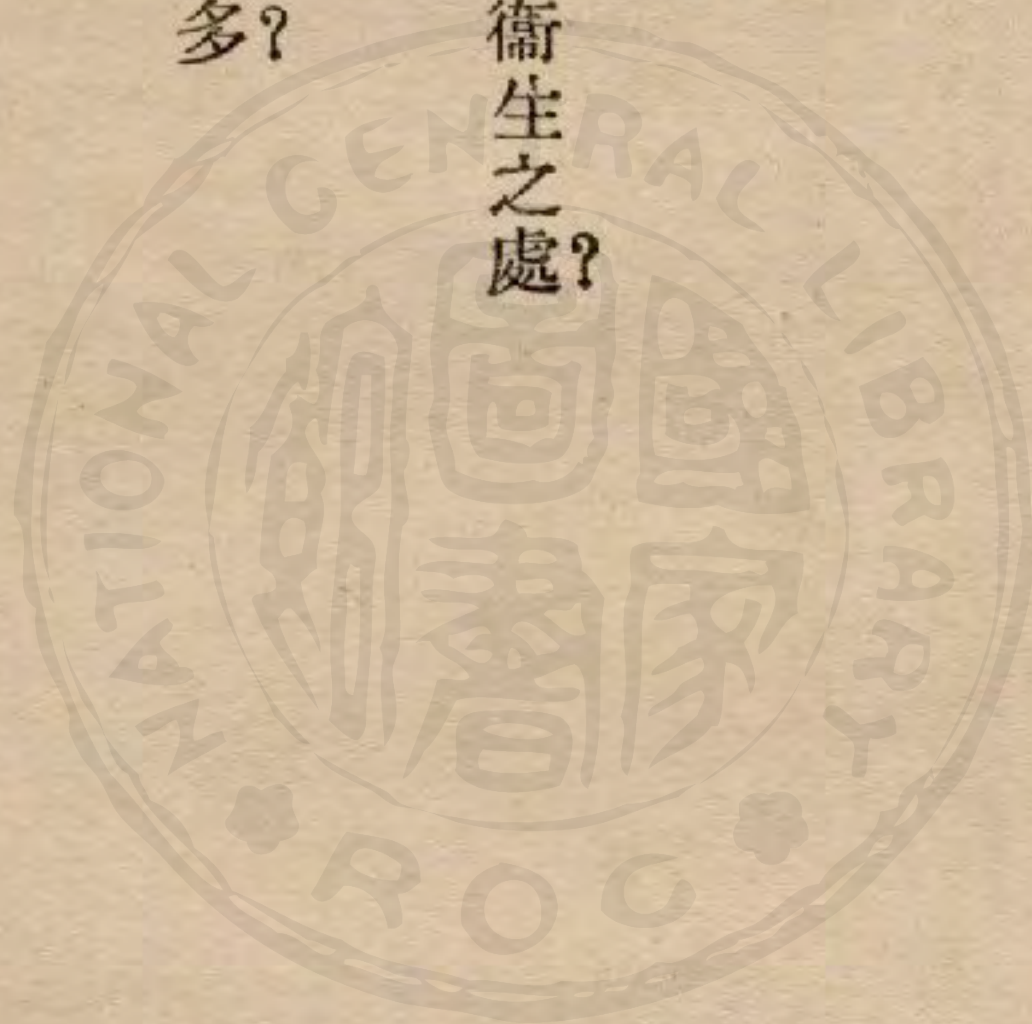 衞生之處?
多?
NATIONAL CENTRAL LIBRARY
國家圖書館
ROC